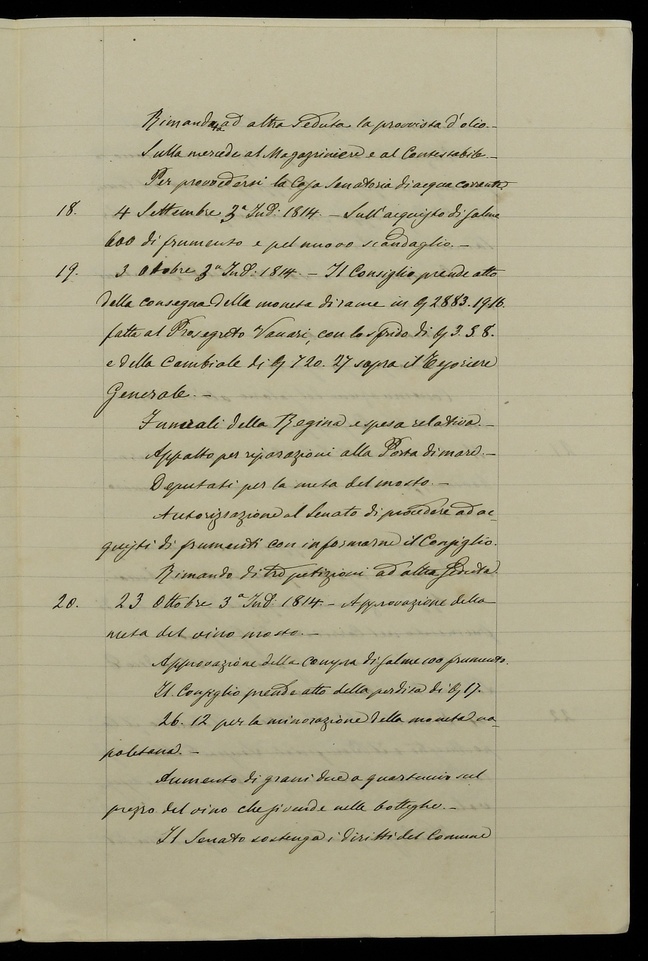 Rimandasi ad altra seduta la provvista d'olio.—
Sulla mercede al Magazziniere e al Contestabile.—
Per provvedersi la Casa Senatoria di acqua corrente
18. 4 Settembre 3ª Ind: 1814. — Sull'acquisto di salme
600 di frumento e pel nuovo scandaglio. —
19. 3 Ottobre 3ª Ind: 1814. — Il Consiglio prende atto
della consegna della moneta di rame in 2883. 19.16.
fatta al Prosegreto Vanari, con lo sfrido di 3. 3. 8.
e della Cambiale di 720. 27 sopra il Tesoriere
Generale. —
Funerali della Regina e spesa relativa. —
Appalto per riparazioni alla Porta di mare. —
Deputati per la meta del mosto. —
Autorizzazione al Senato di procedere ad ac-
quisti di frumenti con informarne il Consiglio.
Rimando di tre petizioni ad altra seduta.
20. 23 Ottobre 3ª Ind: 1814. — Approvazione della
meta del vino mosto. —
Approvazione della compra di salme 100 frumento.
Il Consiglio prende atto della perdita di 17.
26. 12 per la minorazione della moneta na-
politana. —
Aumento di grani due a quartuccio sul
prezzo del vino che si vende nelle botteghe. —
Il Senato sostenga i diritti del Comune